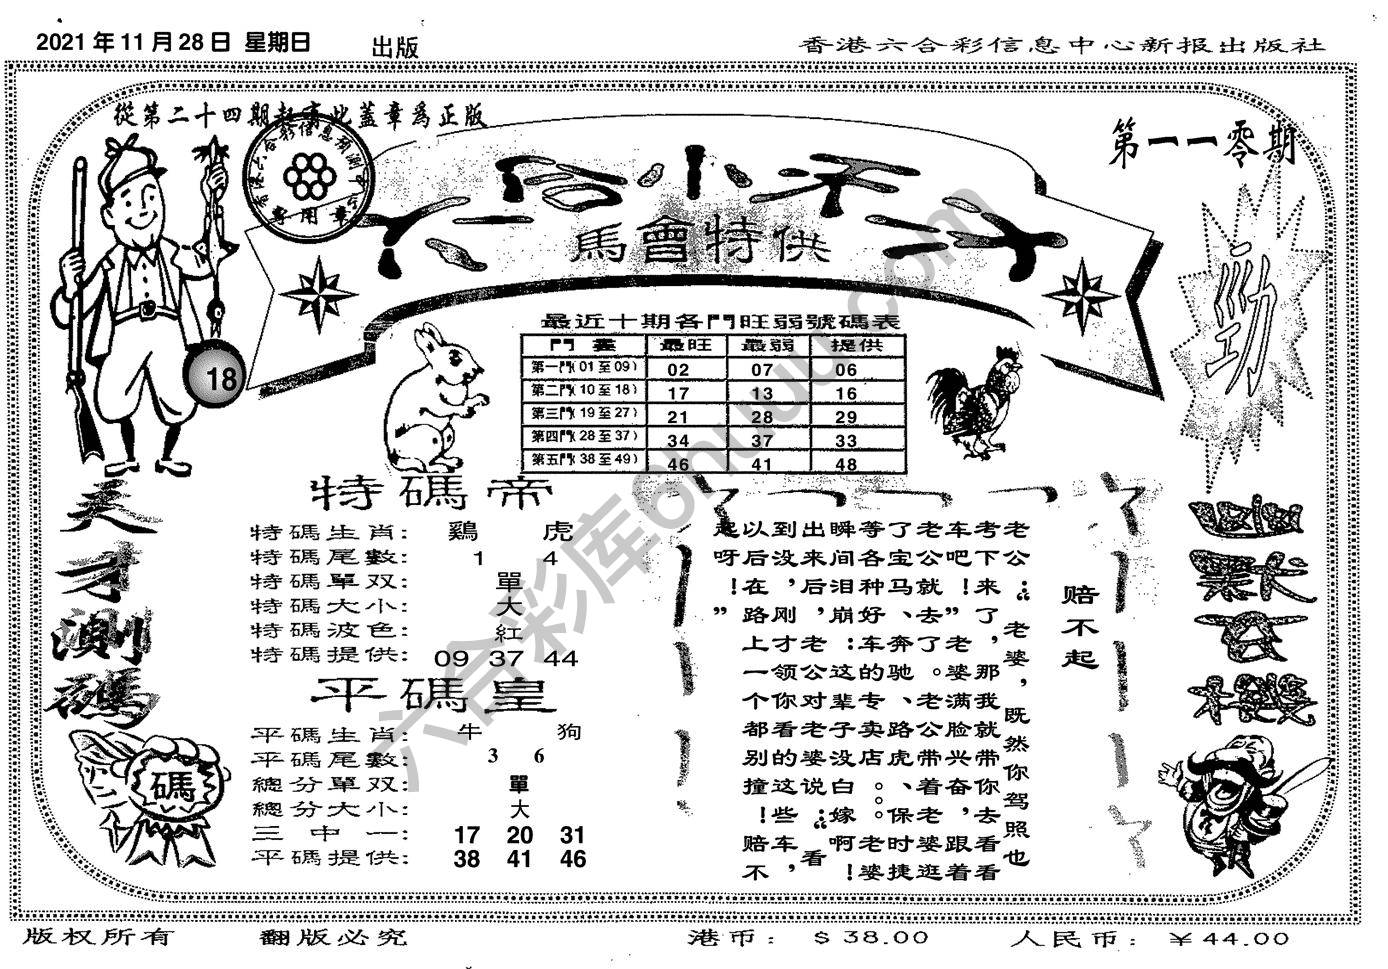 2021年11月28日 星期日
出版
香港六合彩信息中心新报出版社
從第二十四期起蓋此蓋章爲正版
香港六合彩信息預測中心
專用章
第一一零期
六合小天子
馬會特供
勁
18
最近十期各門旺弱號碼表
門 數 最旺 最弱 提供
第一門(01至09) 02 07 06
第二門(10至18) 17 13 16
第三門(19至27) 21 28 29
第四門(28至37) 34 37 33
第五門(38至49) 46 41 48
天才測碼
碼
特碼帝
特碼生肖: 鷄 虎
特碼尾數: 1 4
特碼單双: 單
特碼大小: 大
特碼波色: 紅
特碼提供: 09 37 44
平碼皇
平碼生肖: 牛 狗
平碼尾數: 3 6
總分單双: 單
總分大小: 大
三中一: 17 20 31
平碼提供: 38 41 46
赔不起
老公：“老婆，既然你驾照也
考下来了，那我就带你去看看
车吧！”老婆满脸兴奋，跟着
老公就去了。老公带着老婆逛
了宝马、奔驰、路虎、保时捷
等各种好车的专卖店。。老婆
瞬间泪崩：这辈子没白嫁啊！
出来后，老公对老婆说：“看
到没，刚才领你看的这些车，
以后在路上一个都别撞！赔不
起呀！”
六合彩库6huuu.com
版权所有 翻版必究 港币: $38.00 人民币: ￥44.00